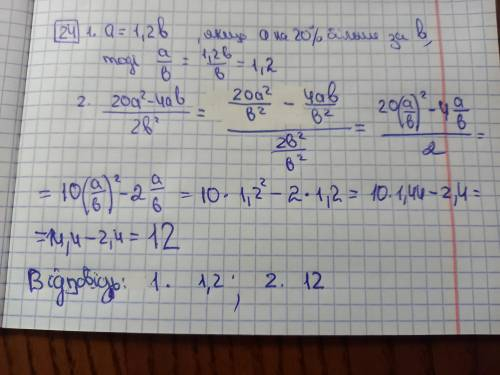 24 1. a = 1,2b , якщо a на 20% більше за b,
тоді a/b = 1,2b/b = 1,2
2. (20a²-4ab)/(2b²) = (20a²/b² - 4ab/b²)/(2b²/b²) = (20(a/b)² - 4 a/b)/2 =
= 10(a/b)² - 2 a/b = 10 · 1,2² - 2 · 1,2 = 10 · 1,44 - 2,4 =
= 14,4 - 2,4 = 12
Відповідь: 1. 1,2 ; 2. 12